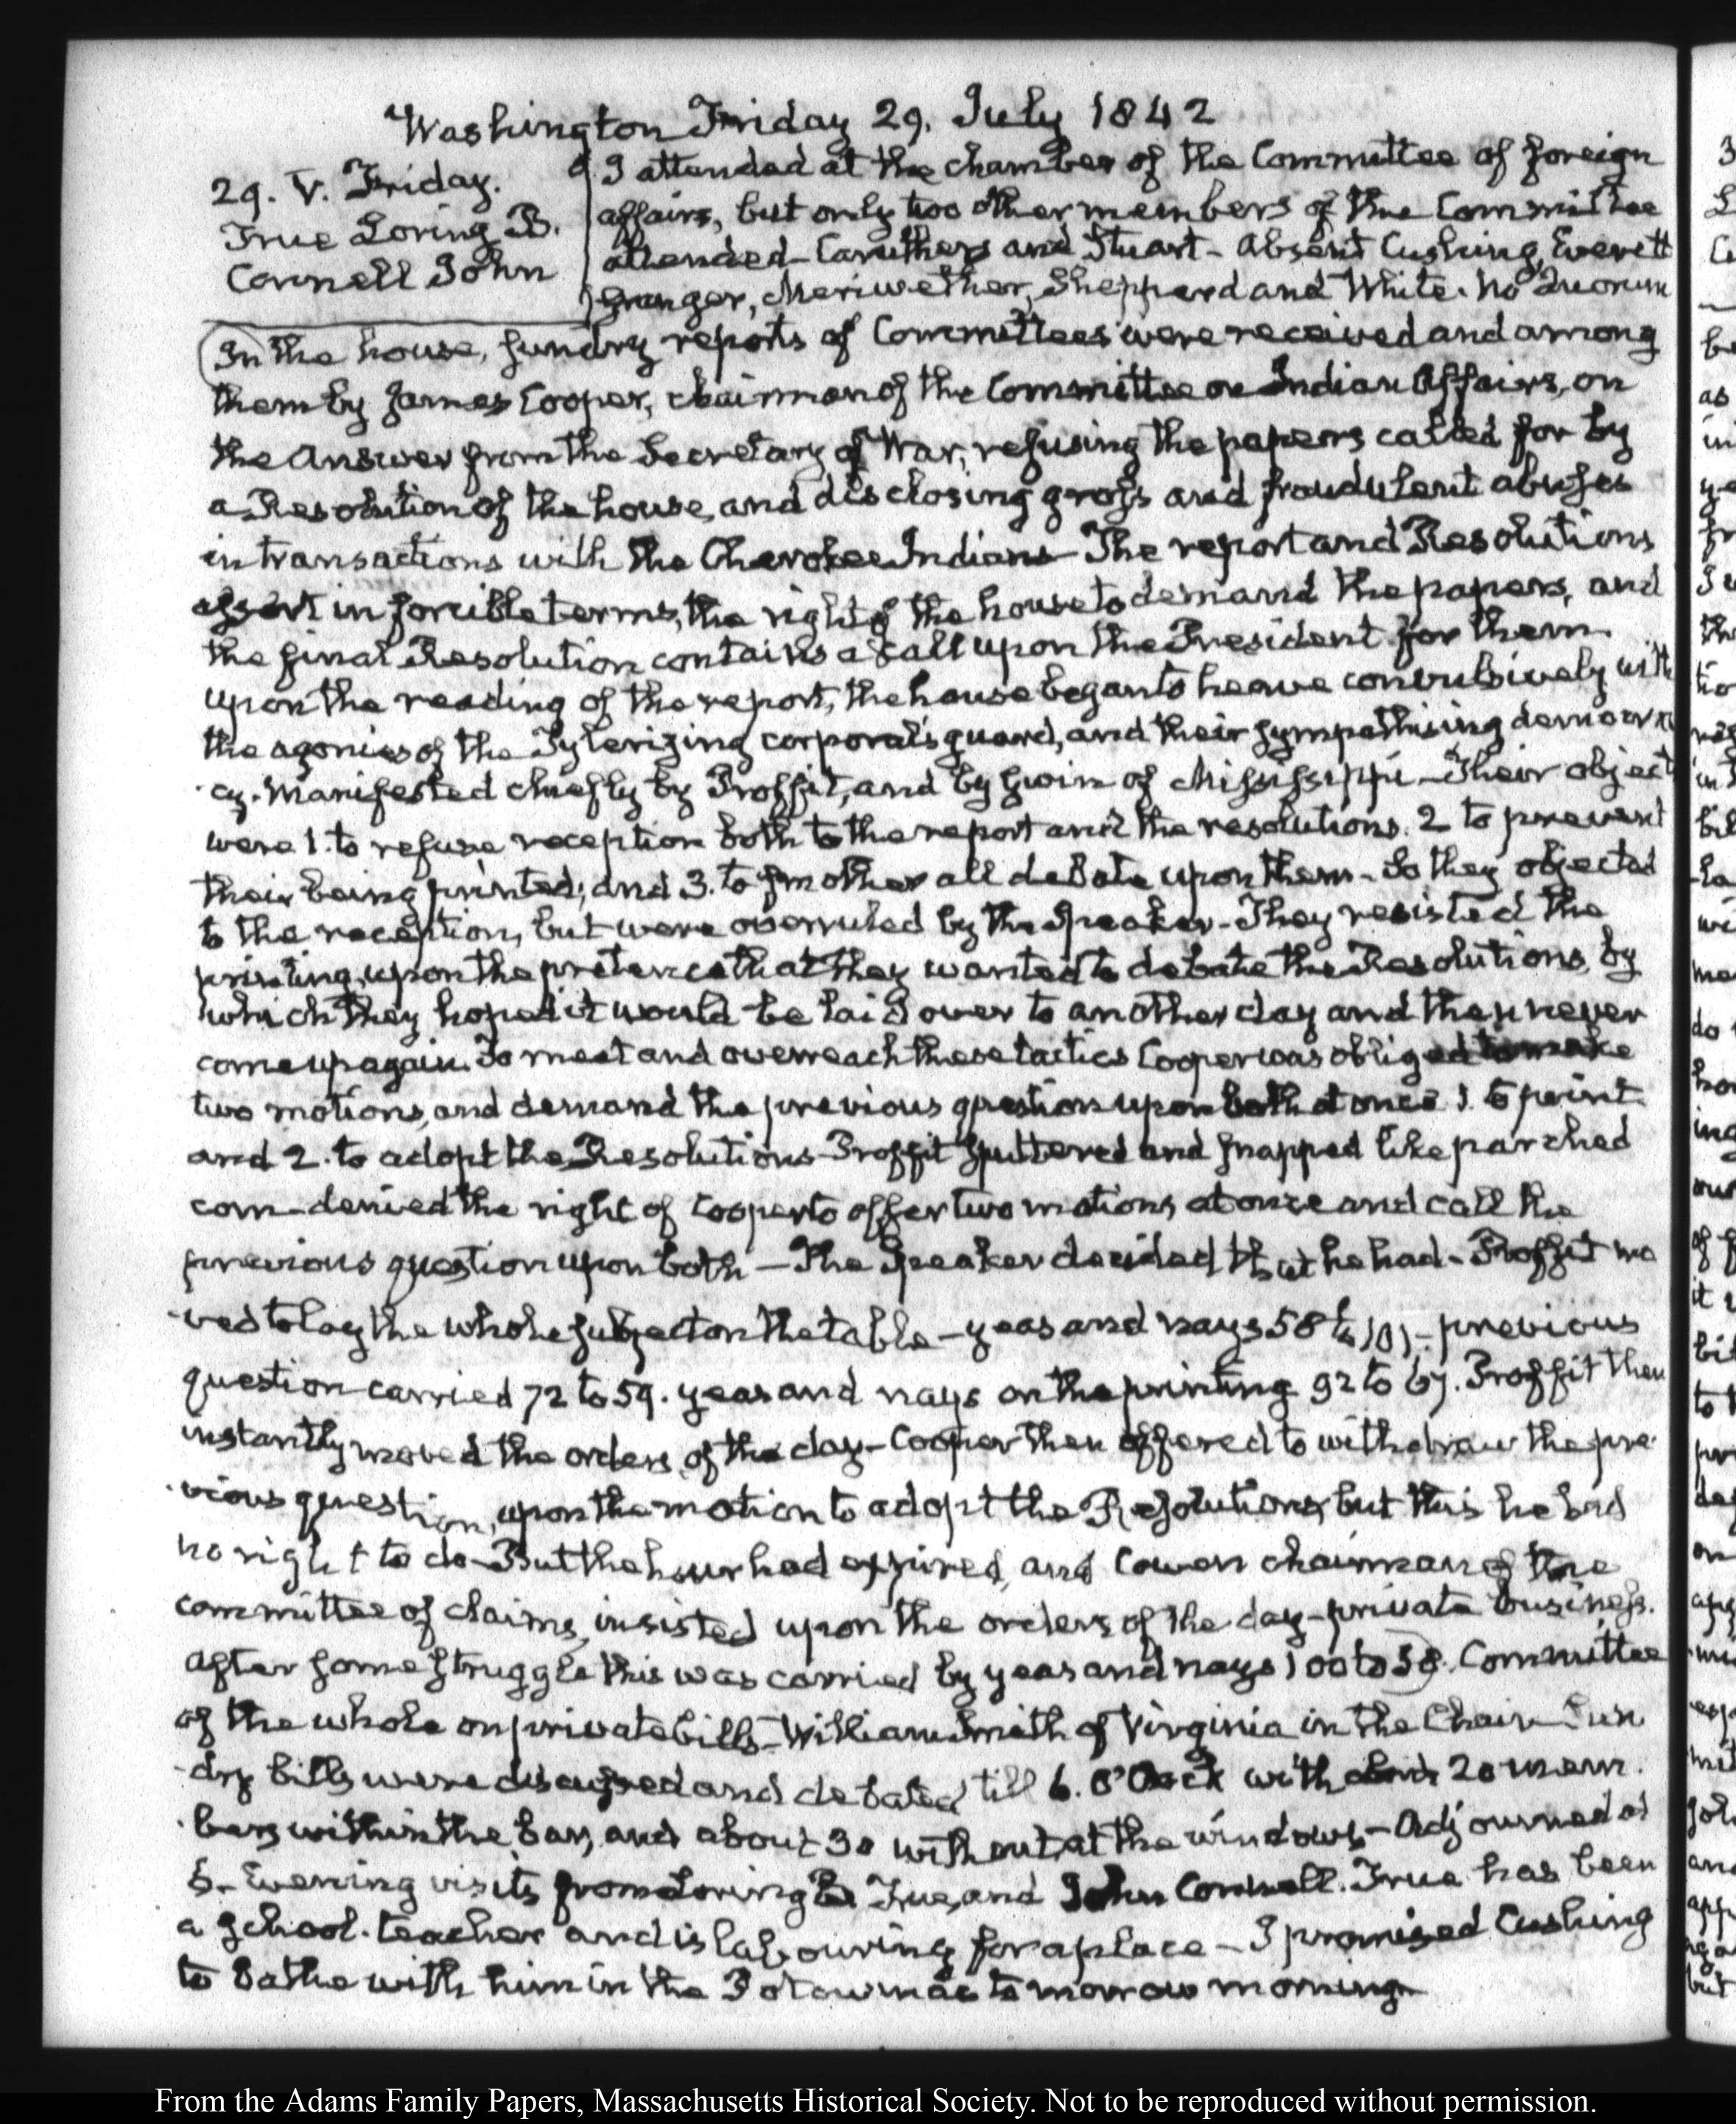 Washington Friday 29. July 1842
29. V. Friday.
True Loring B.
Connell John
I attended at the chamber of the Committee of foreign
affairs, but only two other members of the Committee
attended - Caruthers and Stuart - Absent Cushing, Everett
Granger, Meriwether, Shepperd and White. No Quorum
In the house, sundry reports of Committees were received and among
them by James Cooper, chairman of the Committee on Indian Affairs, on
the Answer from the Secretary of War, refusing the papers called for by
a Resolution of the house, and disclosing gross and fraudulent abuses
in transactions with the Cherokee Indians - The report and Resolutions
assert in forcible terms, the right of the house to demand the papers, and
the final Resolution contains a call upon the President for them
upon the reading of the report, the house began to heave convulsively with
the agonies of the Tylerizing corporal's guard, and their sympathising democra
cy. Manifested chiefly by Proffit, and by Gwin of Mississippi - Their object
were 1. to refuse reception both to the report and the resolutions. 2 to prevent
their being printed; and 3. to smother all debate upon them - So they objected
to the reception, but were overruled by the Speaker - They resisted the
printing, upon the pretence that they wanted to debate the Resolutions, by
which they hoped it would be laid over to another day and then never
come up again. To meet and overreach these tactics Cooper was obliged to make
two motions, and demand the previous question upon both at once 1. to print
and 2. to adopt the Resolutions - Proffit sputtered and snapped like parched
corn - denied the right of Cooper to offer two motions at once and call the
previous question upon both - The Speaker decided that he had - Proffit mo
ved to lay the whole subject on the table - yeas and nays 58 to 101 - previous
question carried 72 to 59. yeas and nays on the printing 92 to 67. Proffit then
instantly moved the orders of the day - Cooper then offered to withdraw the pre
vious question, upon the motion to adopt the Resolutions, but this he had
no right to do - But the hour had expired, and Cowen chairman of the
committee of claims, insisted upon the orders of the day - private business.
After some struggle this was carried by yeas and nays 100 to 58. Committee
of the whole on private bills - William Smith of Virginia in the Chair - Sun
dry bills were discussed and debated till 6. O'Clock with about 20 mem
bers within the bar, and about 30 without, at the windows - Adjourned at
6 - Evening visits from Loring B True, and John Connell. True has been
a school-teacher and is labouring for a place - I promised Cushing
to bathe with him in the Potowmac to morrow morning
From the Adams Family Papers, Massachusetts Historical Society. Not to be reproduced without permission.